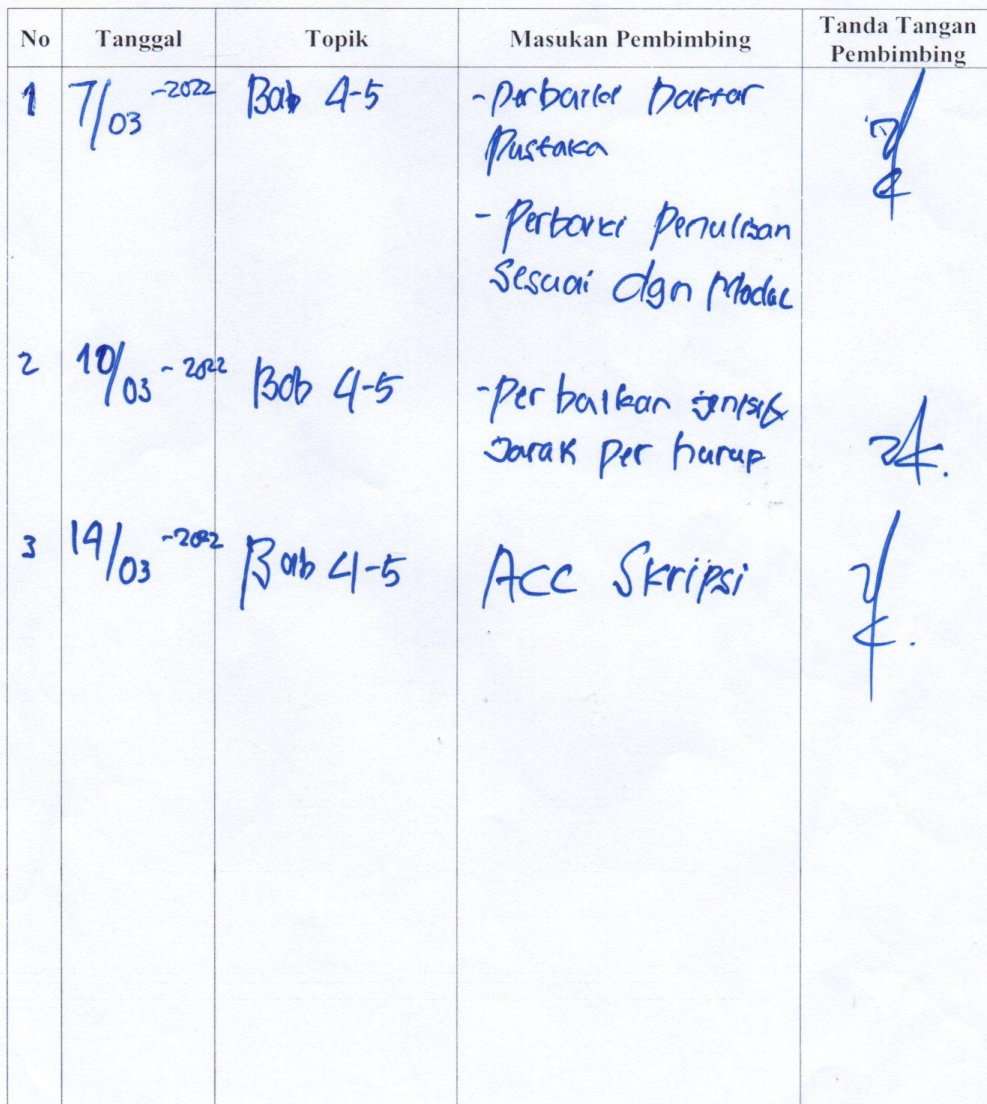 No Tanggal Topik Masukan Pembimbing Tanda Tangan Pembimbing
1 7/03-2022 Bab 4-5 - Perbaiki Daftar
Pustaka
- Perbaiki Penulisan
Sesuai dgn Modul
2 10/03-2022 Bab 4-5 - Perbaikan
Jarak Per hurup
3 14/03-2022 Bab 4-5 ACC Skripsi